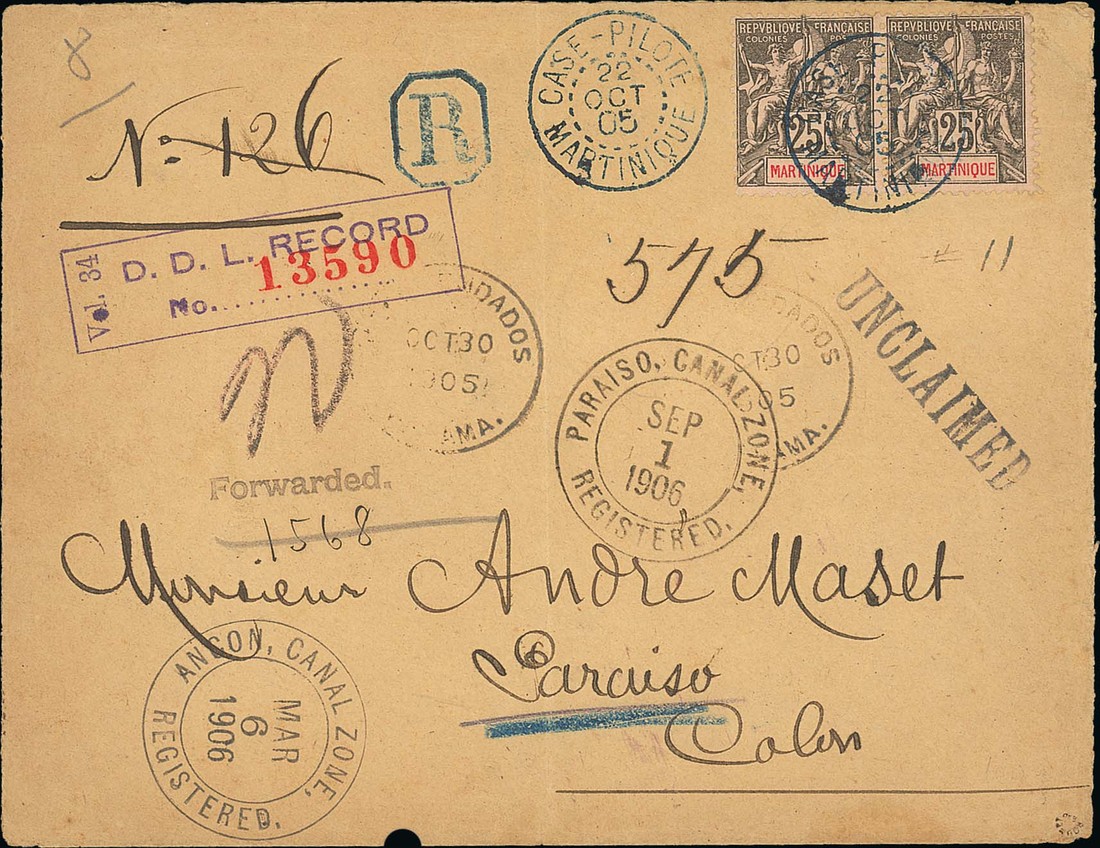 8
Nº 126
R
CASE-PILOTE
22
OCT
05
MARTINIQUE
REPVBLIQUE FRANÇAISE
COLONIES POSTES
25
MARTINIQUE
REPVBLIQUE FRANÇAISE
COLONIES POSTES
25
MARTINIQUE
22
05
Vol. 34
D. D. L. RECORD
No. 13590
575
# 11
UNCLAIMED
OCT 30
1905
DADOS
OCT 30
05
AMA.
PARAISO, CANAL ZONE,
SEP
1
1906
REGISTERED.
Forwarded.
1568
Monsieur Andre Maset
Paraiso
Colon
ANCON, CANAL ZONE,
MAR
6
1906
REGISTERED.